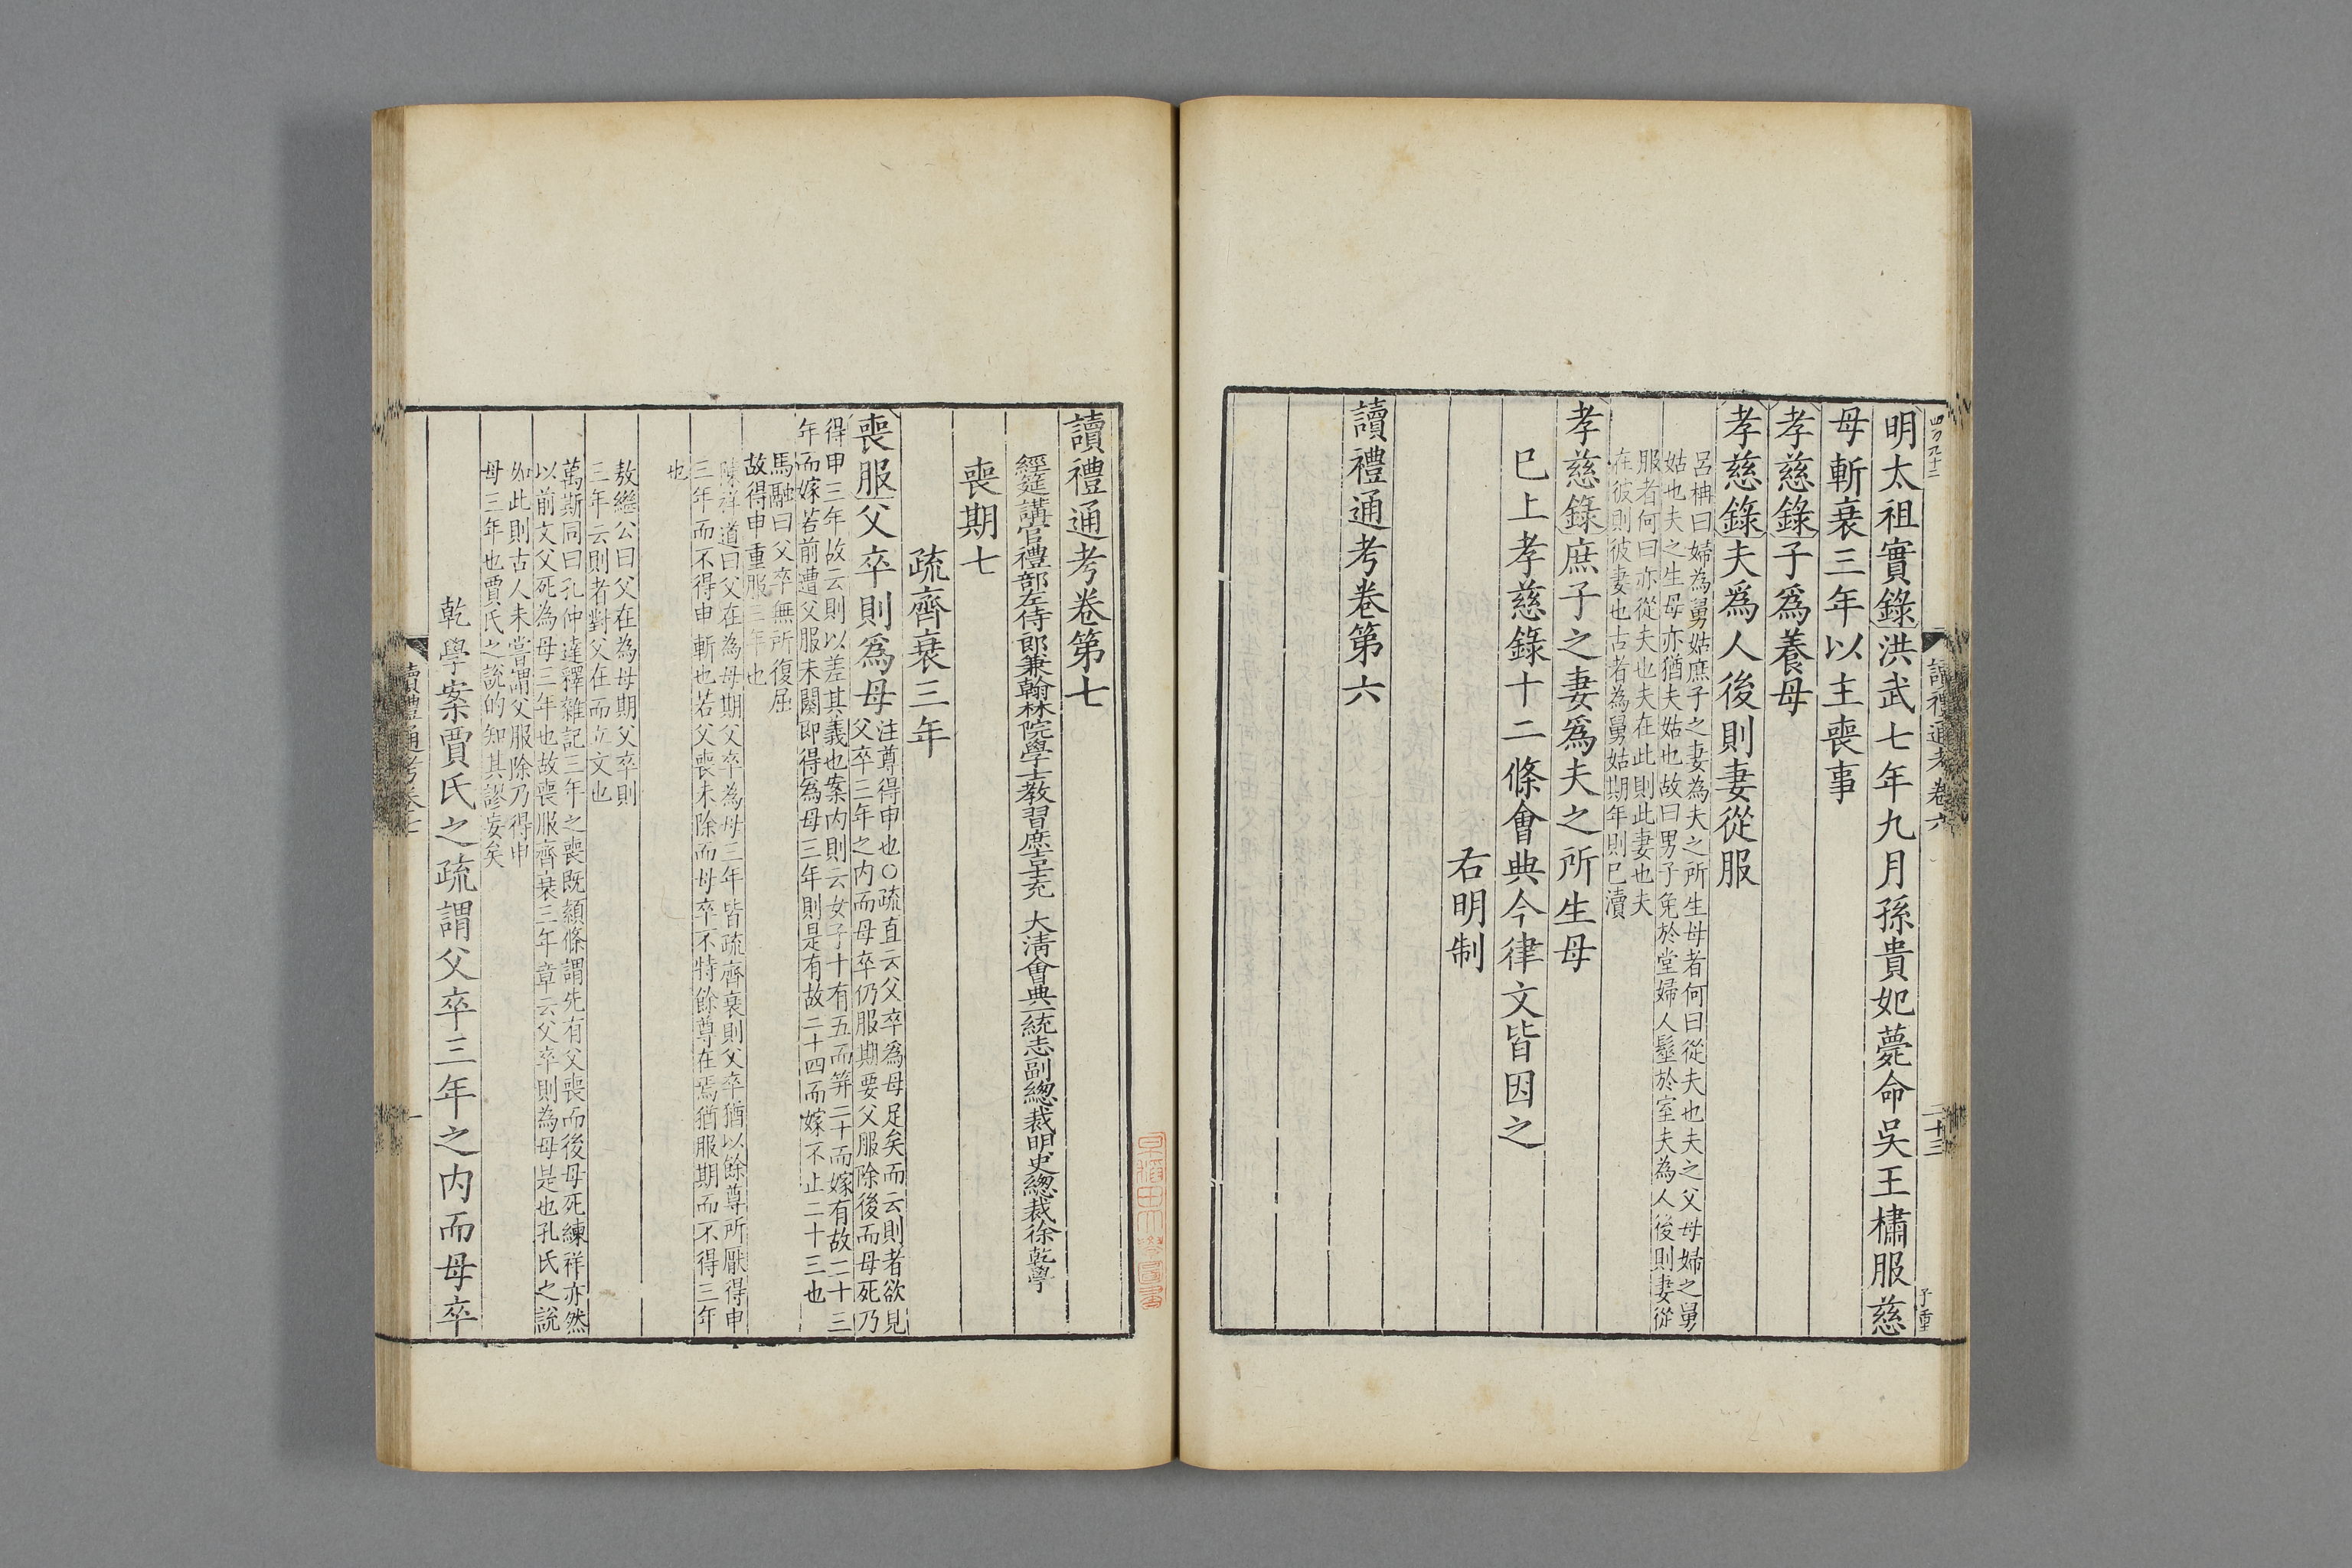 明太祖實錄洪武七年九月孫貴妃薨命吳王橚服慈
母斬衰三年以主喪事
孝慈錄子爲養母
孝慈錄夫爲人後則妻從服
呂柟曰婦為舅姑庶子之妻為夫之所生母者何曰從夫也夫之父母婦之舅
姑也夫之生母亦猶夫姑也故曰男子免於堂婦人髽於室夫為人後則妻從
服者何曰亦從夫也夫在此則此妻也夫
在彼則彼妻也古者為舅姑期年則已瀆
孝慈錄庶子之妻爲夫之所生母
已上孝慈錄十二條會典今律文皆因之
右明制
讀禮通考卷第六
讀禮通考卷六
二十三
子重
讀禮通考卷第七
經筵講官禮部左侍郎兼翰林院學士教習庶吉士充 大淸會典一統志副總裁明史總裁徐乾學
喪期七
疏齊衰三年
喪服父卒則爲母
注尊得申也○疏直云父卒爲母足矣而云則者欲見
父卒三年之内而母卒仍服期要父服除後而母死乃
得申三年故云則以差其義也案内則云女子十有五而筓二十而嫁有故二十三
年而嫁若前遭父服未闋即得爲母三年則是有故二十四而嫁不止二十三也
馬融曰父卒無所復屈
故得申重服三年也
陳祥道曰父在為母期父卒為母三年皆疏齊衰則父卒猶以餘尊所厭得申
三年而不得申斬也若父喪未除而母卒不特餘尊在焉猶服期而不得三年
也
敖繼公曰父在為母期父卒則
三年云則者對父在而立文也
萬斯同曰孔仲達釋雜記三年之喪既顈條謂先有父喪而後母死練祥亦然
以前文父死為母三年也故喪服齊衰三年章云父卒則為母是也孔氏之說
如此則古人未嘗謂父服除乃得申
母三年也賈氏之說的知其謬妄矣
乾學案賈氏之疏謂父卒三年之内而母卒
讀禮通考卷七
一
早稲田大學圖書